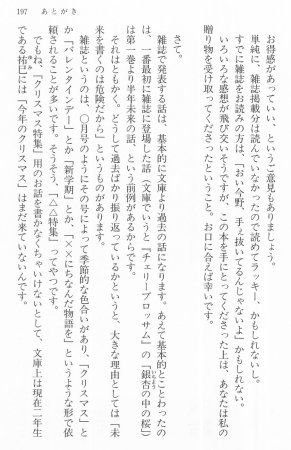 197　あとがき
お得感があっていい、というご意見もありましょう。
単純に、雑誌掲載分は読んでいなかったので読めてラッキー、かもしれないし。
すでに雑誌をお読みの方は、「おい今野、手ぇ抜いてるんじゃないよ」かもしれない。
いろいろな感想が飛び交いそうですが、この本を手にとってくださった上は、あなたは私の
贈り物を受け取ってくださったということ。お口に合えば幸いです。
さて。
雑誌で発表する話は、基本的に文庫より過去の話になります。あえて基本的にとことわったの
は、一番最初に雑誌に登場した話（文庫でいうと『チェリーブロッサム』の「銀杏の中の桜」）
は第一巻より半年未来の話、という前例があるからです。
それはともかく。どうして過去ばかり振り返っているかというと、大きな理由としては「未
来を書くのは危険だから」というものがあります。
雑誌というのは、〇月号のようにその号によって季節的な色合いがあり、「クリスマス」と
か「バレンタインデー」とか「新学期」とか、「××にちなんだ物語を」というような形で依
頼されることが多いです。そうそう、「△△特集」ってやつです。
でもね、「クリスマス特集」用のお話を書かなくちゃいけないとして、文庫上は現在二年生
である祐巳には「今年のクリスマス」はまだ来ていないんです。